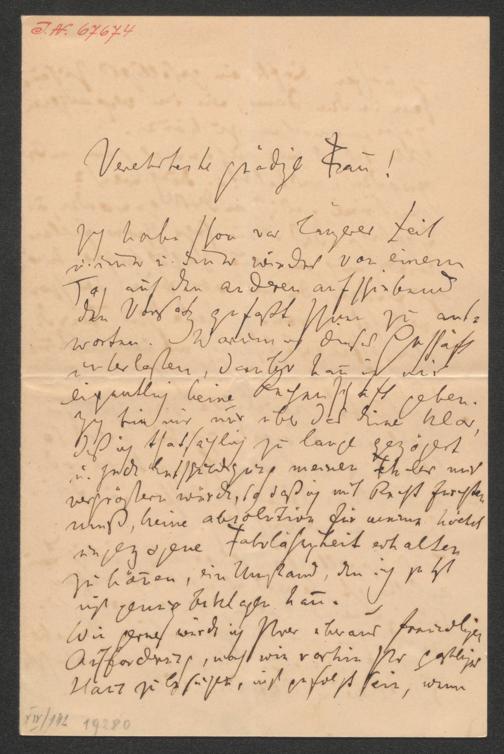 J.N. 67674
Verehrteste gnädige Frau!
Ich habe schon vor längerer Zeit
u. immer u. immer wieder von einem
Tag auf den anderen aufschiebend
den Vorsatz gefaßt Ihnen zu ant=
worten. Warum ich dieses
unterlassen, darüber kann ich mir
eigentlich keine Rechenschaft geben.
Ich bin mir nur über das Eine klar,
daß ich thatsächlich zu lange gezögert
u. jede Entschuldigung meinen Fehler nur
vergrößern würde, so daß ich mit Recht fürchten
muß, keine Absolution für meine höchst
ungezogene Fahrlässigkeit erhalten
zu können, ein Umstand, den ich jetzt
nicht genug beklagen kann.
Wie gerne würde ich Ihrer überaus freundlichen
Aufforderung, nach wie vorhin Ihr gastliches
Haus zu besuchen, nicht gefolgt sein, wenn
XIV/191 19280